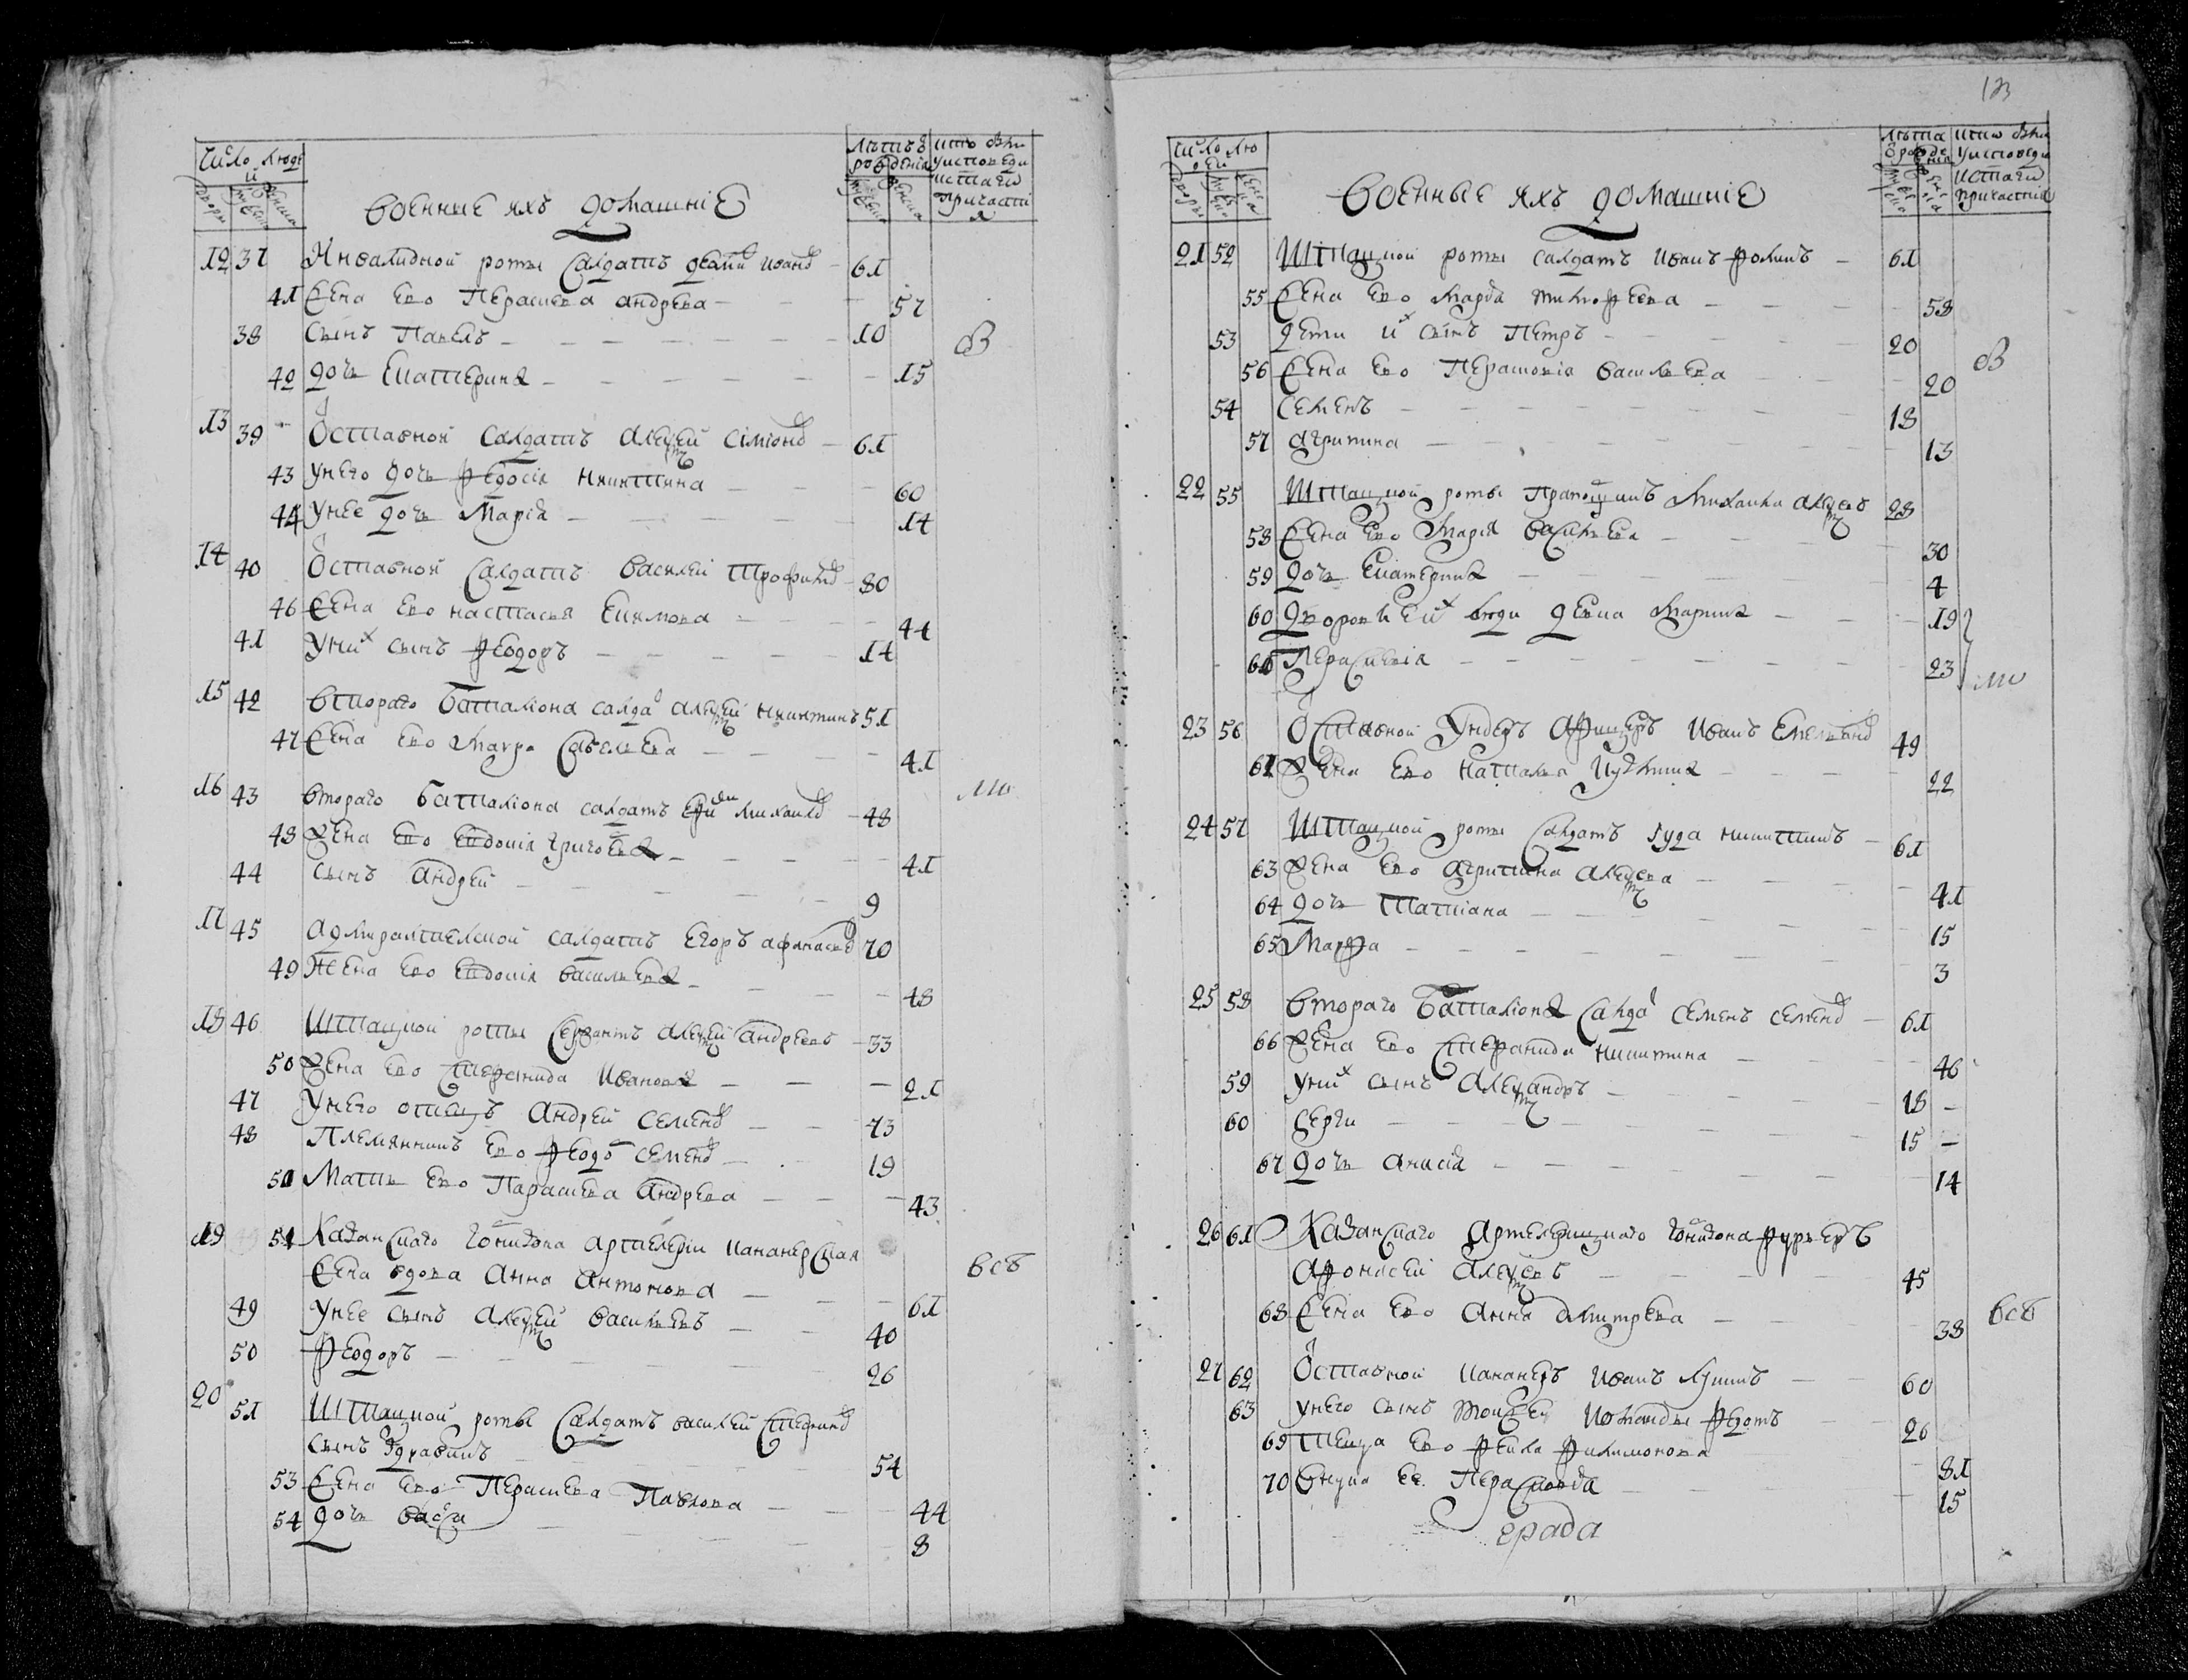 Число людей
Лѣтъ ѿ рожденія
кто были у исповеди и стаго причастия
дворы
мужеска
женска
мужеска
женска
Военные ихъ домашніе
12 37 Инвалидной роты Салдатъ Иванъ 61
41 Жена Ево Перасковья андреева 57
38 Сынъ Павелъ 10
42 дочь Екатерина 15
в
13 39 Оставной Салдатъ Алексей Симіоновъ 61
43 Унего дочь Федосія Никитина 60
44 Унее дочь Марія 14
14 40 Оставной Салдатъ Василей Трофимовъ 80
46 Жена Ево настасья Екимова 44
41 Унихъ сынъ Феодоръ 14
15 42 Втораго Баталіона салдатъ Алексей Никитинъ 51
47 Жена Ево Мавра Савельева 41
16 43 Втораго Баталіона салдатъ Михаиловъ 48
48 Жена Ево Евдокія Григорьева 41
то
44 Сынъ Андрей 9
17 45 Адмиралтейской салдатъ Егоръ афанасьевъ 70
49 Жена Ево Евдокія Васильева 48
18 46 Штатной роты Сержантъ Алексей Андреевъ 33
50 Жена Ево Степанида Иванова 21
47 Унего отецъ Андрей Семеновъ 73
48 Племянникъ Ево Феодоръ Семеновъ 19
51 Мать Ево Парасковья Андреева 43
19 51 Казанскаго Гарнизона артелеріи Канонерская
Жена вдова Анна Антонова 61
всѣ
49 Унее сынъ Алексей Васильевъ 40
50 Феодоръ 26
20 51 Штатной роты Салдатъ Василей Степановъ
сынъ Здравинъ 54
53 Жена Ево Перасковья Павлова 44
54 дочь Васса 8
123
Число людей
Лѣта ѿ рождения
кто были у исповеди и стаго причастия
дворы
мужеска
женска
Военные ихъ домашніе
21 52 Штатной роты салдатъ Иванъ Фокинъ 61
55 Жена Ево Марфа Тимофеева 58
53 дети ихъ сынъ Петръ 20
в
56 Жена Ево Перасковія Васильева 20
54 Семенъ 18
57 агрипина 13
22 55 Штатной роты Прапощикъ Михаила Алексеевъ 28
58 Жена Ево Марія Васильева 30
59 дочь Екатерина 4
60 Дворовыеихъ люди девка Марина 19
61 Перасковія 23
то
23 56 Оставной Ундеръ Афицеръ Иванъ Емельяновъ 49
61 Жена Ево Наталья Кузмина 22
24 57 Штатной роты Салдатъ Іуда Никитинъ 61
63 Жена Ево Агрипина Алексеева 41
64 дочь Татіана 15
65 Марфа 3
25 58 Втораго Баталіона Салдатъ Семенъ Семеновъ 61
66 Жена Ево Степанида Никитина 46
59 Унихъ сынъ Александръ 18
60 Серги 15
67 дочь Анисія 14
26 61 Казанскаго Артелерискаго Гарнизона Фурьеръ
Афонасей Алексеевъ 45
68 Жена Ево Анна Дмитрева 38
всѣ
27 62 Оставной Кананеръ Иванъ Лукинъ 60
63 унего сынъ Мойсей Команды Флотъ 26
69 Теща Ево Фекла Филимонова 81
70 Внука ее Перасковья 15
среда